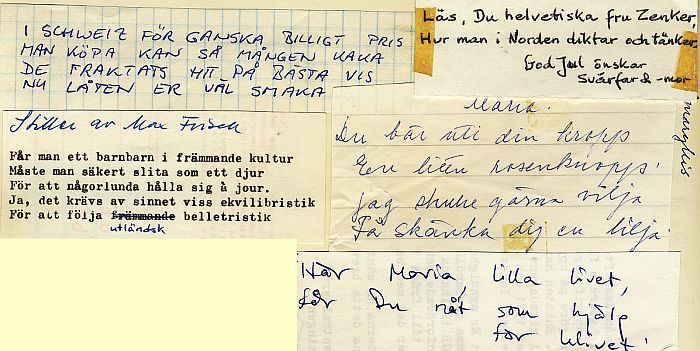 I SCHWEIZ FÖR GANSKA BILLIGT PRIS
MAN KÖPA KAN SÅ MÅNGEN KAKA
DE FRAKTATS HIT PÅ BÄSTA VIS
NU LÅTEN ER VÄL SMAKA
Läs, Du helvetiska fru Zenker,
Hur man i Norden diktar och tänker.
God Jul önskar
Svärfar & -mor
Stiller av Max Frisch
Får man ett barnbarn i främmande kultur
Måste man säkert slita som ett djur
För att någorlunda hålla sig à jour.
Ja, det krävs av sinnet viss ekvilibristik
För att följa främmande belletristik
utländsk
Maria.
Du bär uti din kropp
En liten rosenknopp.
Jag skulle gärna vilja
Få skänka dig en lilja.
När Maria, lilla livet,
får Du nåt som hjälp
för klivet!